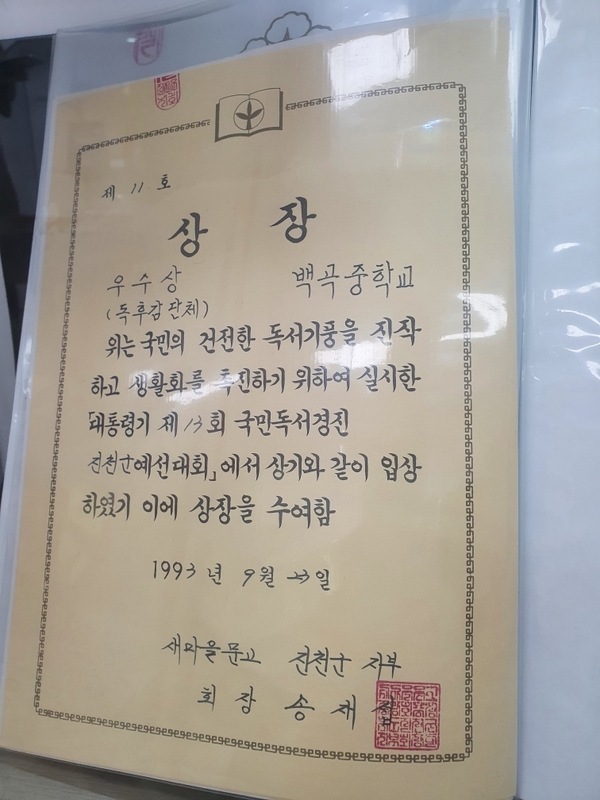 제 11 호
상 장
우수상 백곡중학교
(독후감단체)
위는 국민의 건전한 독서기풍을 진작
하고 생활화를 촉진하기 위하여 실시한
「대통령기 제13회 국민독서경진
진천군예선대회」에서 상기와 같이 입상
하였기 이에 상장을 수여함
1993년 9월 23일
새마을문고 진천군 지부
회 장 송 재